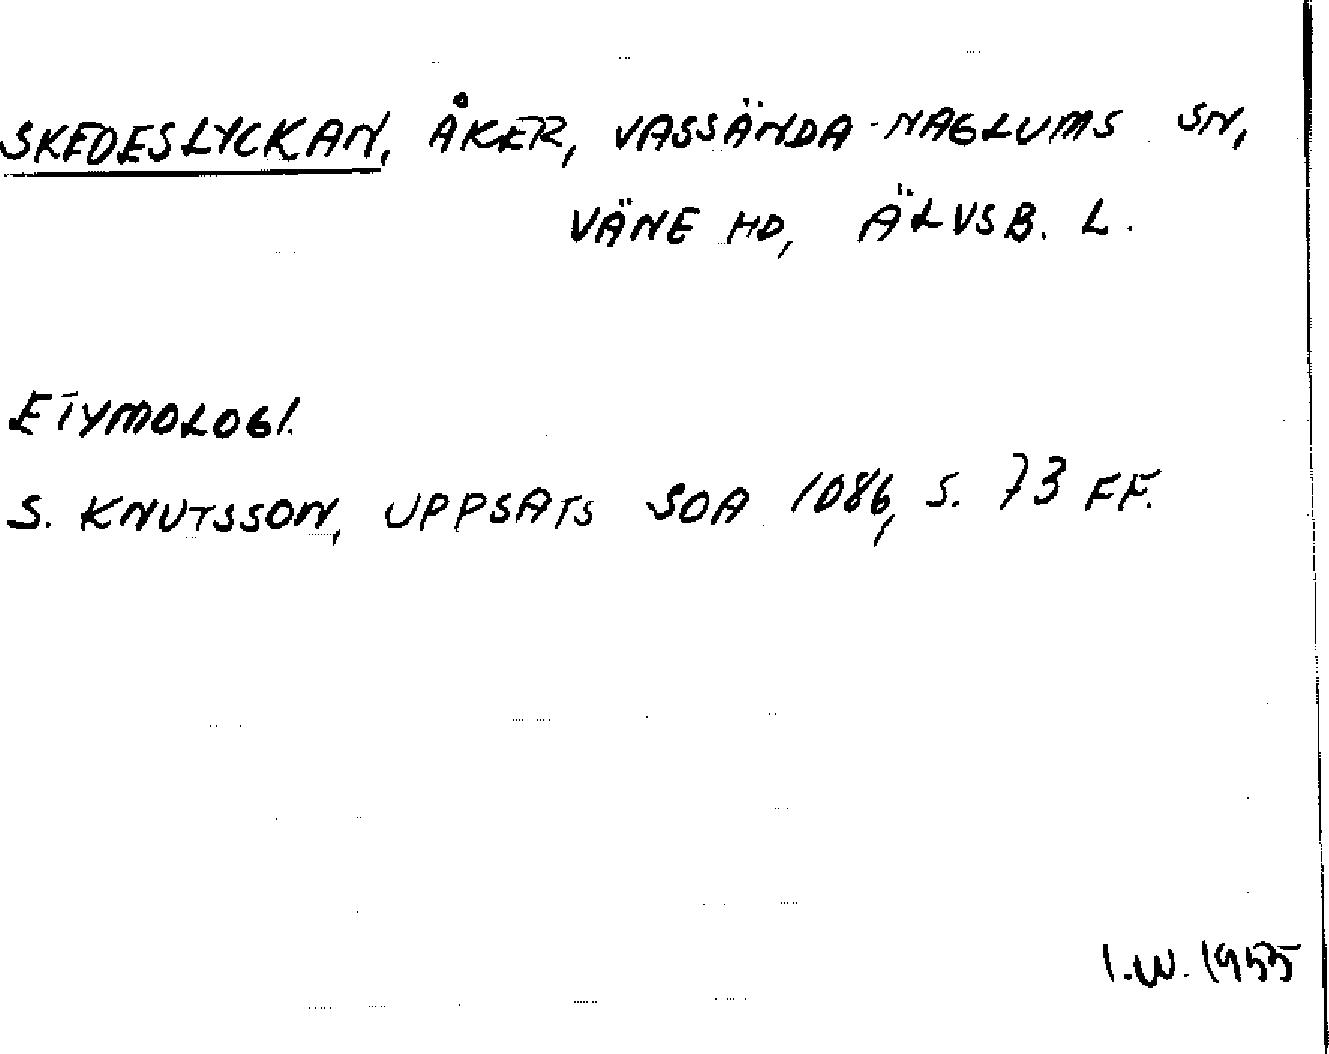 SKEDESLYCKAN, ÅKER, VASSÄNDA-NAGLUMS SN,
VÄNE HD, ÄLVSB. L.
ETYMOLOGI.
S. KNUTSSON, UPPSATS SOA 1086, S. 73 FF.
I.W. 1955